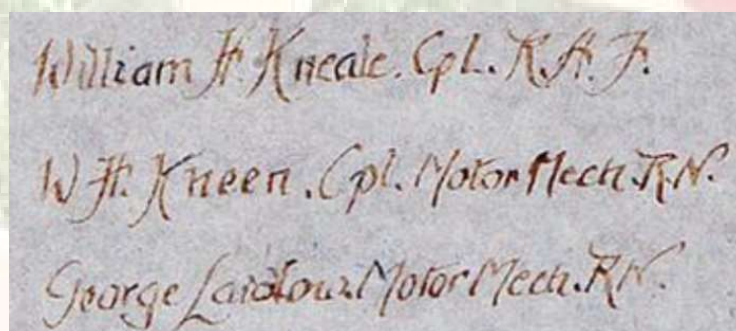 William H. Kneale. Cpl. R.A.F.
W.H. Kneen. Cpl. Motor Mech. R.N.
George Laidlow. Motor Mech. R.N.